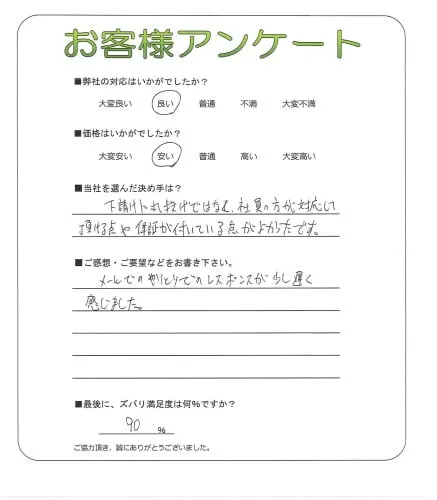 お客様アンケート
■弊社の対応はいかがでしたか？
大変良い 良い 普通 不満 大変不満
■価格はいかがでしたか？
大変安い 安い 普通 高い 大変高い
■当社を選んだ決め手は？
下請けに丸投げではなく、社員の方が対応して
頂ける点や保証が付いている点がよかったです。
■ご感想・ご要望などをお書き下さい。
メールでのやりとりでのレスポンスが少し遅く
感じました。
■最後に、ズバリ満足度は何%ですか？
90 %
ご協力頂き、誠にありがとうございました。